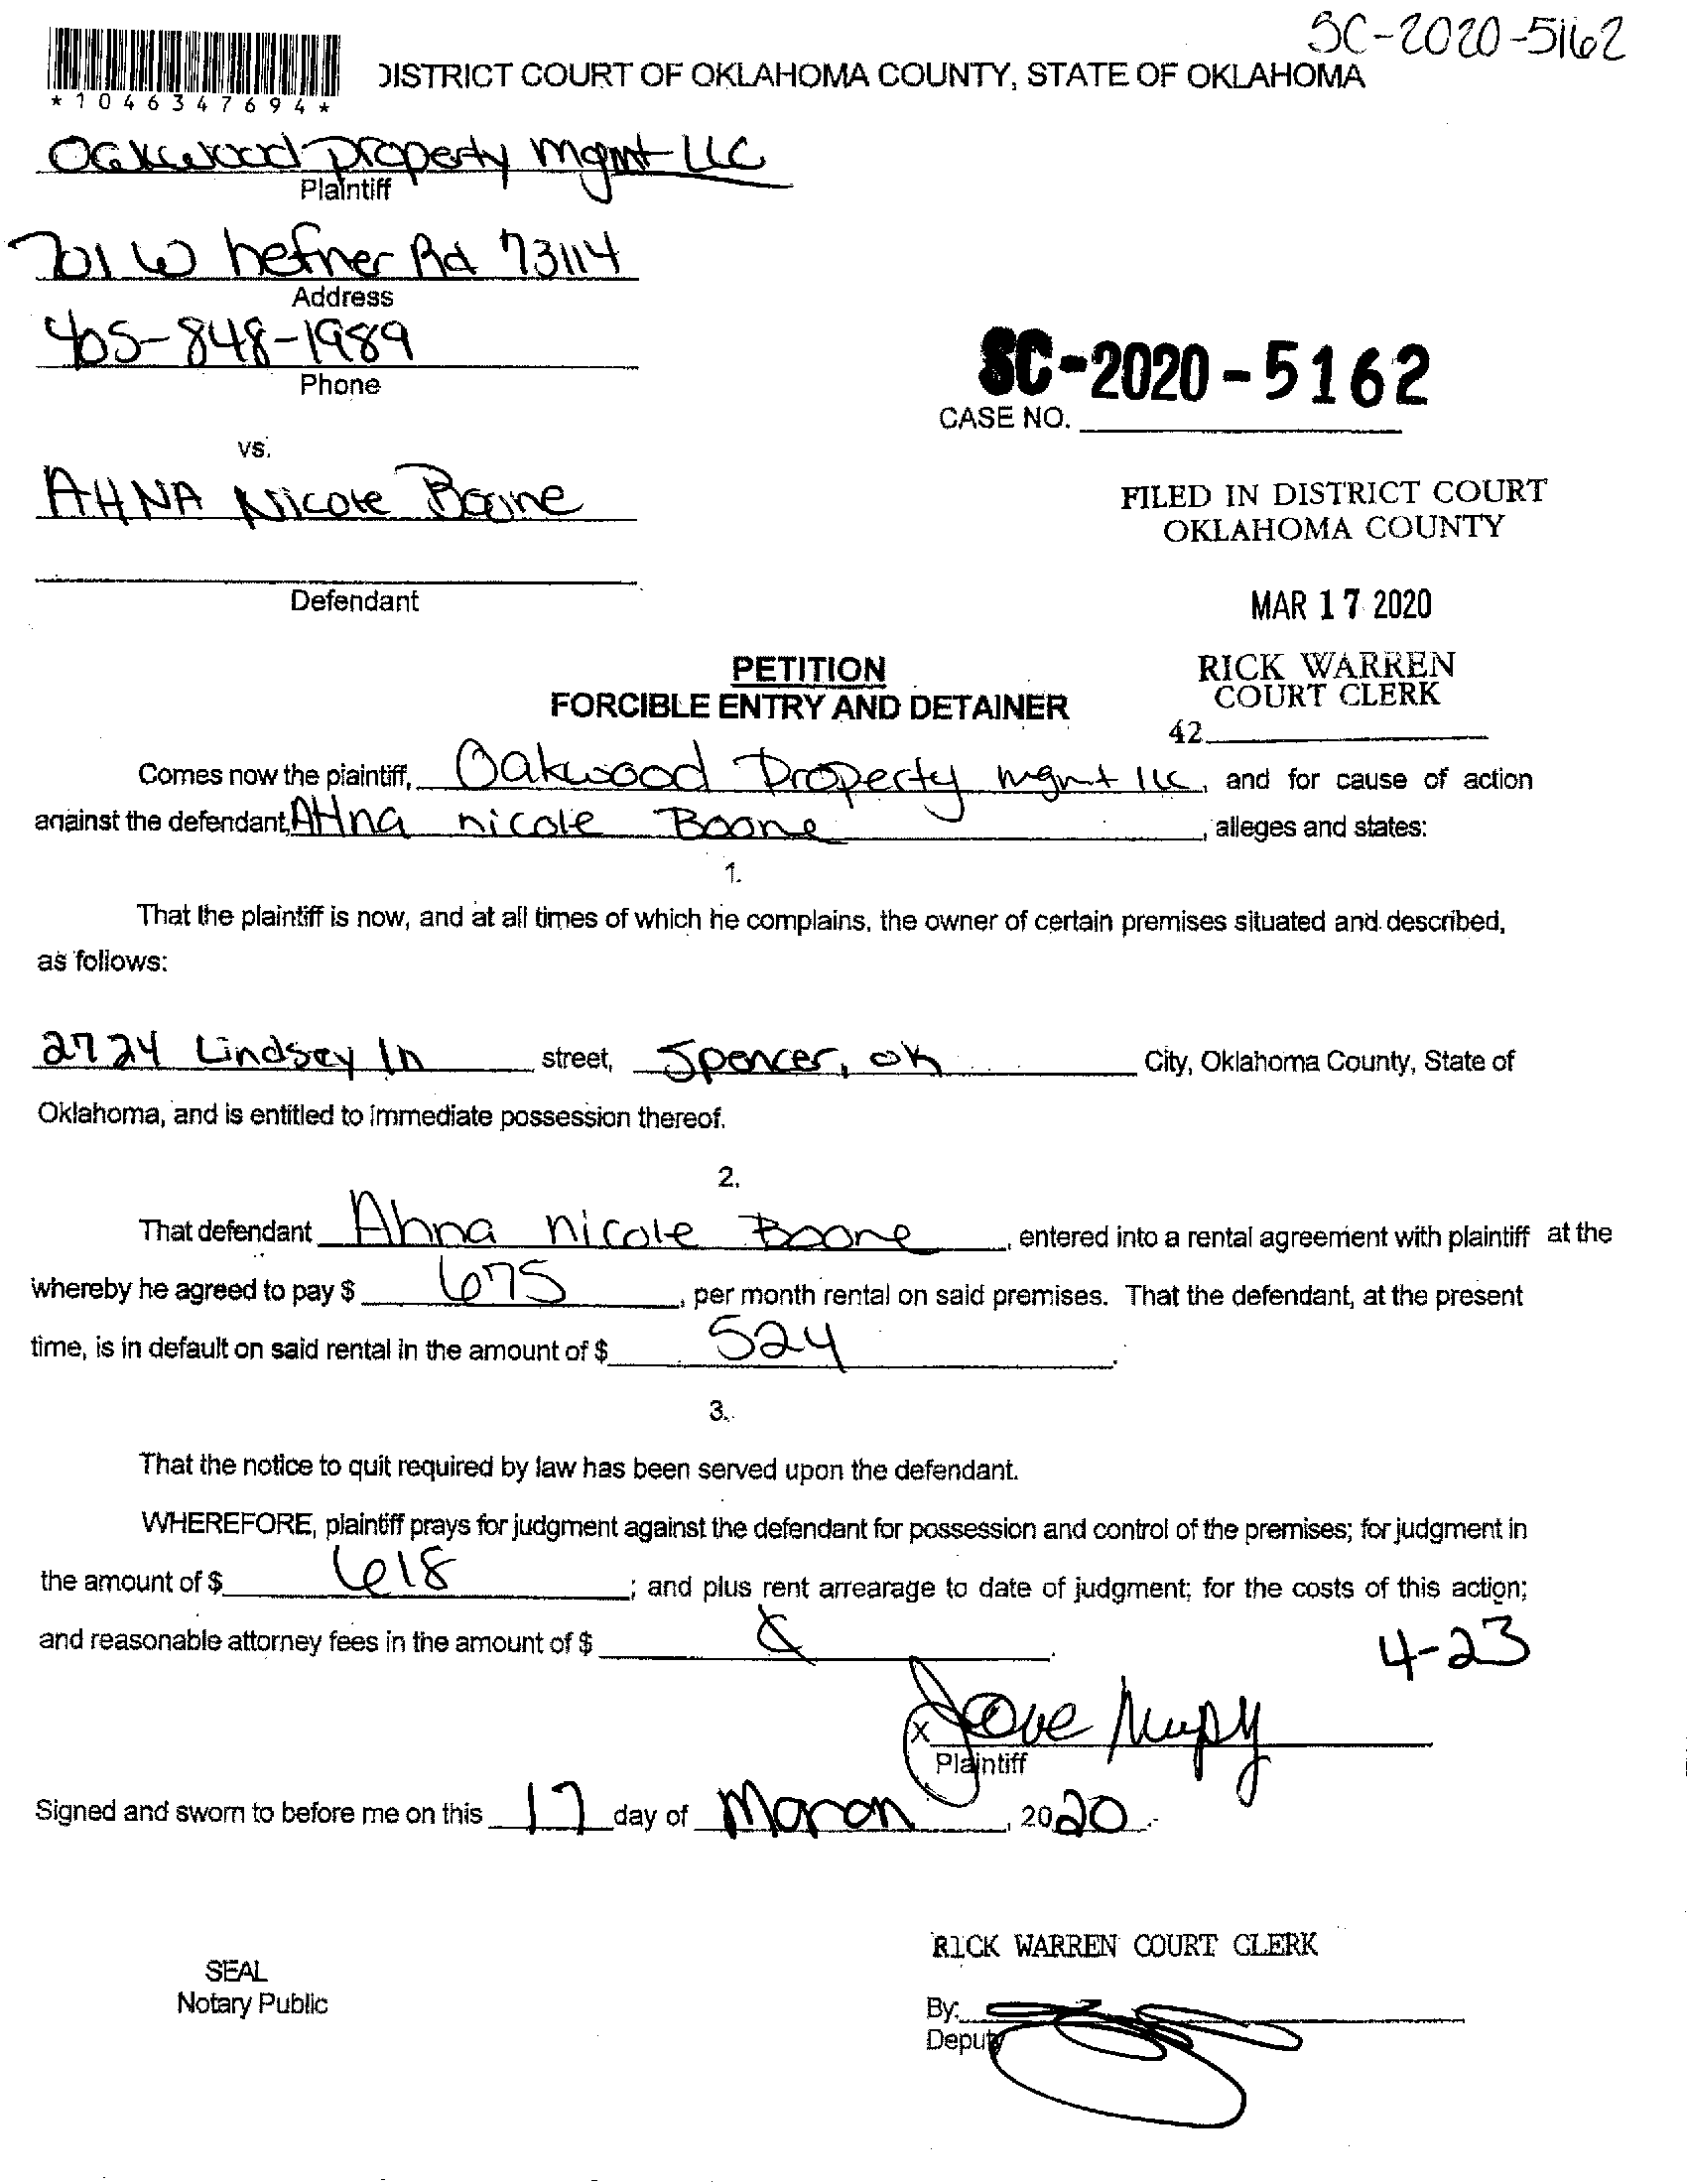 SC-2020-5162
DISTRICT COURT OF OKLAHOMA COUNTY, STATE OF OKLAHOMA
*1046347694*
Oakwood Property Mgmt LLC
Plaintiff
701 W hefner Rd 73114
Address
405-848-1989
Phone
SC-2020-5162
CASE NO.
vs.
AHNA Nicole Boone
FILED IN DISTRICT COURT
OKLAHOMA COUNTY
Defendant
MAR 17 2020
PETITION
FORCIBLE ENTRY AND DETAINER
RICK WARREN
COURT CLERK
42
Comes now the plaintiff, Oakwood Property mgmt llc, and for cause of action
against the defendant, AHna nicole Boone, alleges and states:
1.
That the plaintiff is now, and at all times of which he complains, the owner of certain premises situated and described,
as follows:
2724 Lindsey ln street, Spencer, ok City, Oklahoma County, State of
Oklahoma, and is entitled to immediate possession thereof.
2.
That defendant Ahna nicole Boone, entered into a rental agreement with plaintiff at the
whereby he agreed to pay $ 675, per month rental on said premises. That the defendant, at the present
time, is in default on said rental in the amount of $ 524.
3.
That the notice to quit required by law has been served upon the defendant.
WHEREFORE, plaintiff prays for judgment against the defendant for possession and control of the premises; for judgment in
the amount of $ 618; and plus rent arrearage to date of judgment; for the costs of this action;
and reasonable attorney fees in the amount of $ .
4-23
X
Plaintiff
Signed and sworn to before me on this 17 day of March, 2020.
RICK WARREN COURT CLERK
SEAL
Notary Public
By:
Deputy